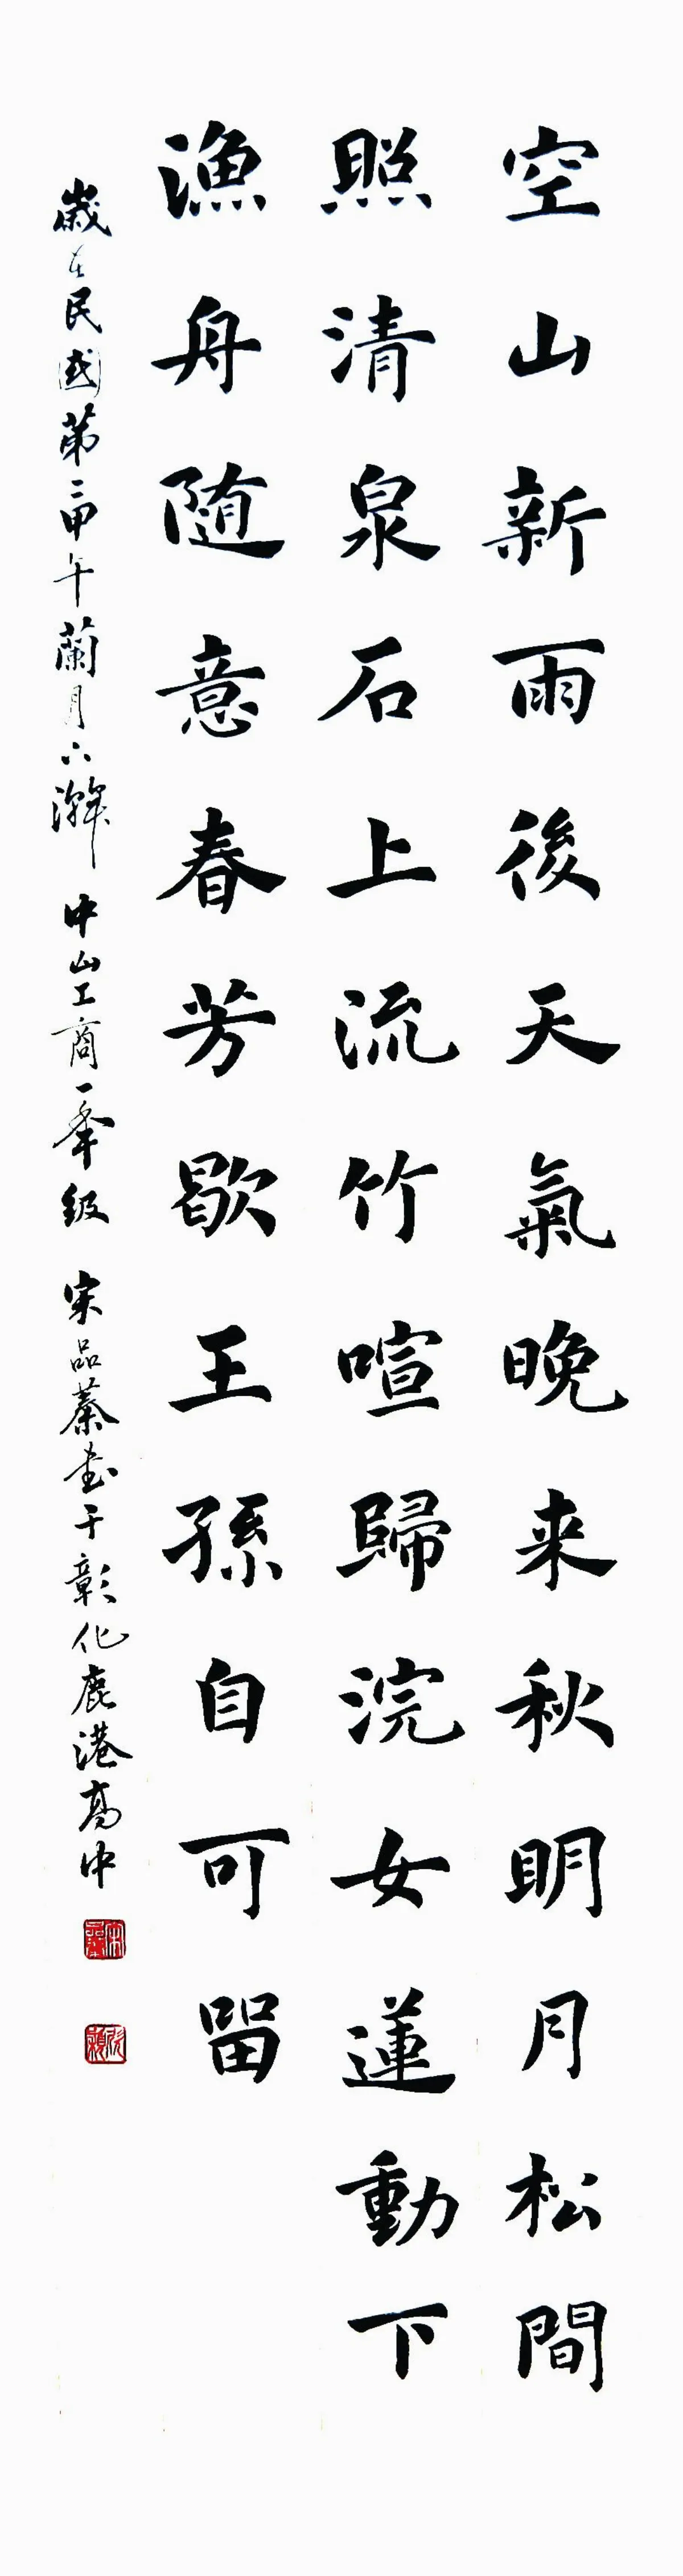 空山新雨後天氣晚来秋明月松間
照清泉石上流竹喧歸浣女蓮動下
漁舟随意春芳歇王孫自可留
歲在民國第二甲午蘭月六澣 中山工商一年級 宋品蓁書于彰化鹿港高中